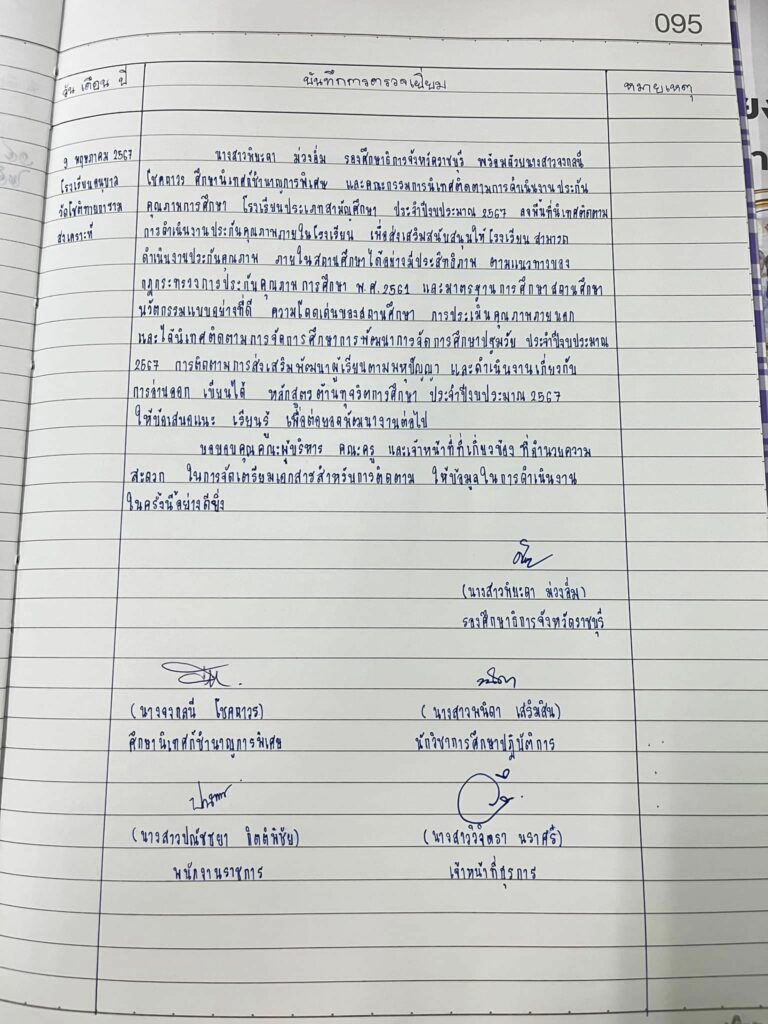 095
วัน เดือน ปี
บันทึกการตรวจเยี่ยม
หมายเหตุ
9 พฤษภาคม 2567
โรงเรียนอนุบาล
วัดโชติทายการาม
สงเคราะห์
นางสาวพิยะดา ม่วงอิ่ม รองศึกษาธิการจังหวัดราชบุรี พร้อมด้วยนางสาวจงกลนี
โชคถาวร ศึกษานิเทศก์ชำนาญการพิเศษ และคณะกรรมการนิเทศติดตามการดำเนินงานประกัน
คุณภาพการศึกษา โรงเรียนประเภทสามัญศึกษา ประจำปีงบประมาณ 2567 ลงพื้นที่นิเทศติดตาม
การดำเนินงานประกันคุณภาพภายในโรงเรียน เพื่อส่งเสริมสนับสนุนให้โรงเรียนสามารถ
ดำเนินงานประกันคุณภาพ ภายในสถานศึกษาได้อย่างมีประสิทธิภาพ ตามแนวทางของ
กฎกระทรวงการประกันคุณภาพการศึกษา พ.ศ. 2561 และมาตรฐานการศึกษาสถานศึกษา
นวัตกรรมแบบอย่างที่ดี ความโดดเด่นของสถานศึกษา การประเมินคุณภาพภายนอก
และได้นิเทศติดตามการจัดการศึกษาการพัฒนาการจัดการศึกษาปฐมวัย ประจำปีงบประมาณ
2567 การติดตามการส่งเสริมพัฒนาผู้เรียนตามพหุปัญญา และดำเนินงานเกี่ยวกับ
การอ่านออก เขียนได้ หลักสูตรต้านทุจริตการศึกษา ประจำปีงบประมาณ 2567
ให้ข้อเสนอแนะ เรียนรู้ เพื่อต่อยอดพัฒนางานต่อไป
ขอขอบคุณคณะผู้บริหาร คณะครู และเจ้าหน้าที่ที่เกี่ยวข้อง ที่อำนวยความ
สะดวก ในการจัดเตรียมเอกสารสำหรับการติดตาม ให้ข้อมูลในการดำเนินงาน
ในครั้งนี้อย่างดียิ่ง
(นางสาวพิยะดา ม่วงอิ่ม)
รองศึกษาธิการจังหวัดราชบุรี
(นางจงกลนี โชคถาวร)
(นางสาวพนิดา เสริมสิน)
ศึกษานิเทศก์ชำนาญการพิเศษ
นักวิชาการศึกษาปฏิบัติการ
(นางสาวปณัชชยา จิตต์พิชัย)
(นางสาววิจิตรา นราศรี)
พนักงานราชการ
เจ้าหน้าที่ธุรการ